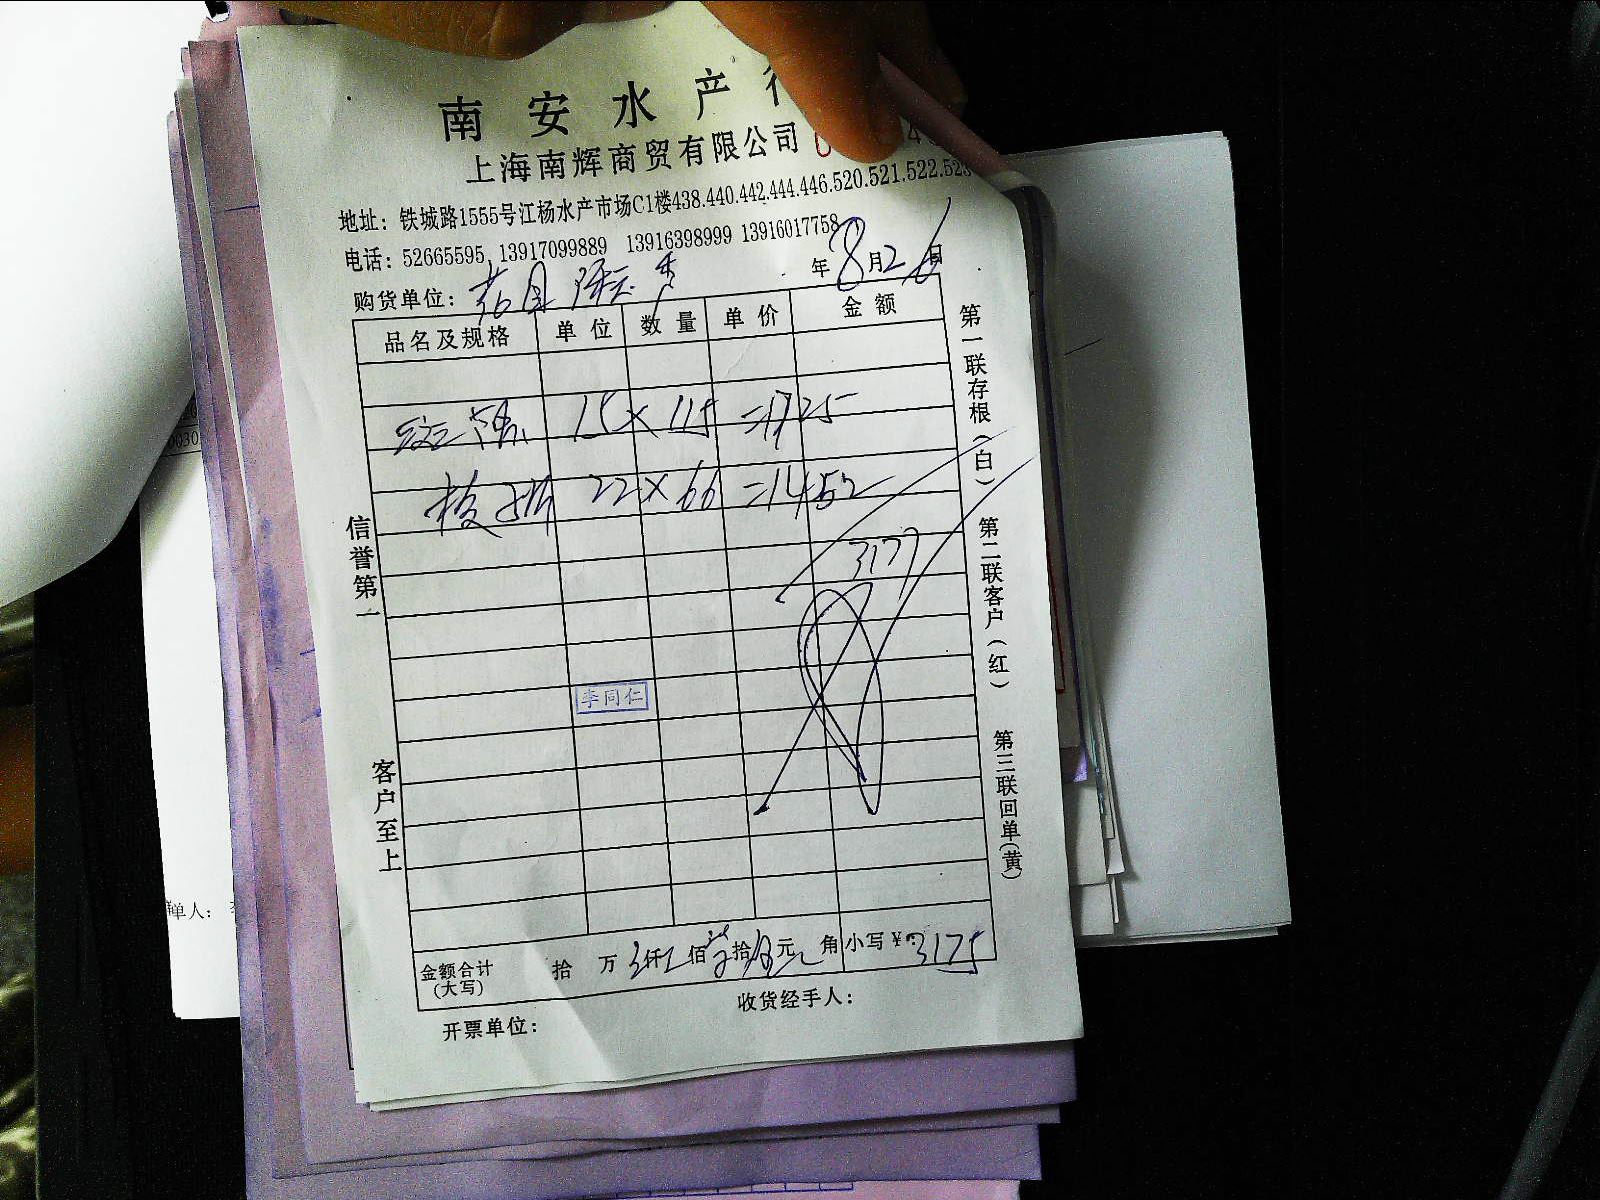 南安水产
上海南辉商贸有限公司
地址：铁城路1555号江杨水产市场C1楼438.440.442.444.446.520.521.522.523
电话：52665595, 13917099889 13916398999 13916017758
年8月26日
购货单位：
品名及规格 单位 数量 单价 金额
15×115=1725
22×66=1452
3177
李同仁
金额合计(大写) 拾 万 仟 佰 拾 元 角 小写￥：3175
收货经手人：
开票单位：
信誉第一
客户至上
第一联存根(白)
第二联客户(红)
第三联回单(黄)
单人：